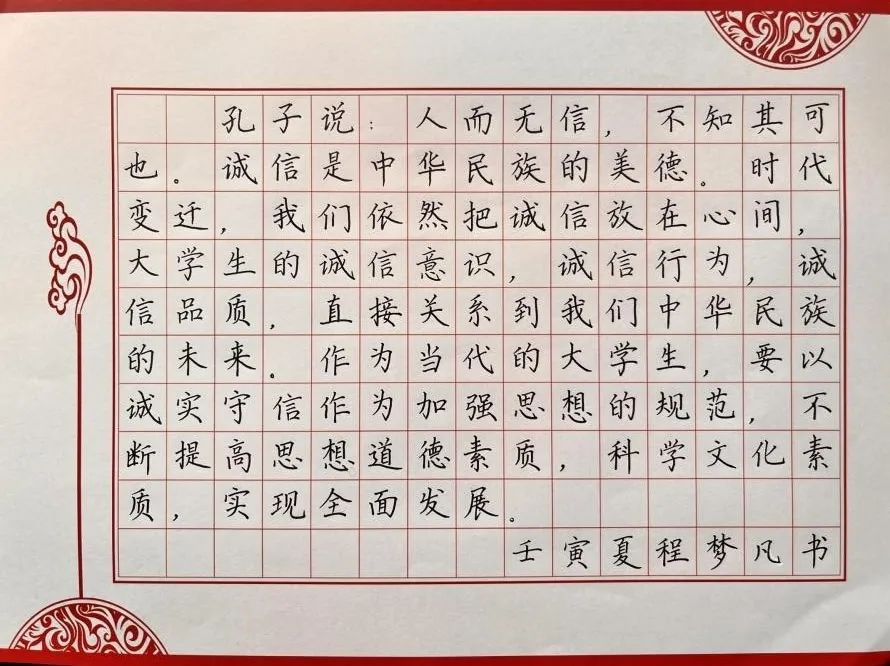 孔子说：人而无信，不知其可
也。诚信是中华民族的美德。时代
变迁，我们依然把诚信放在心间，
大学生的诚信意识，诚信行为，诚
信品质，直接关系到我们中华民族
的未来。作为当代的大学生，要以
诚实守信作为加强思想的规范，不
断提高思想道德素质，科学文化素
质，实现全面发展。
壬寅夏程梦凡书